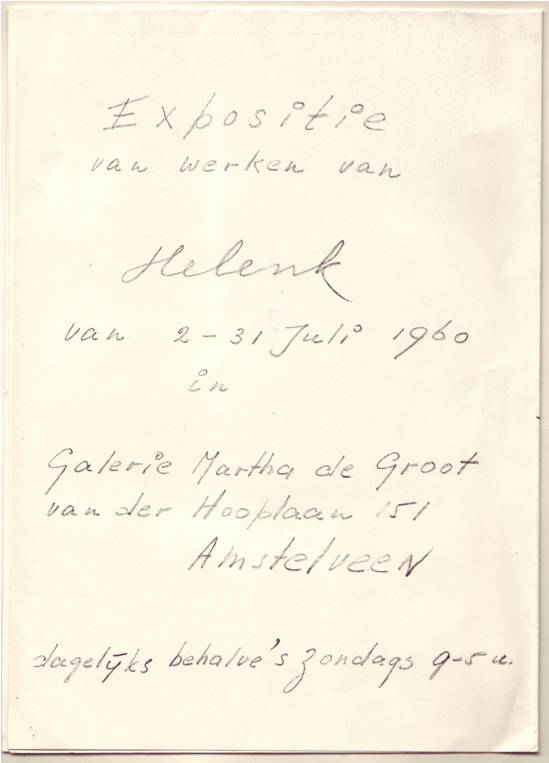 Expositie
van werken van
Helenk
van 2-31 Juli 1960
in
Galerie Martha de Groot
van der Hooplaan 151
Amstelveen
dagelijks behalve 's zondags 9-5 u.